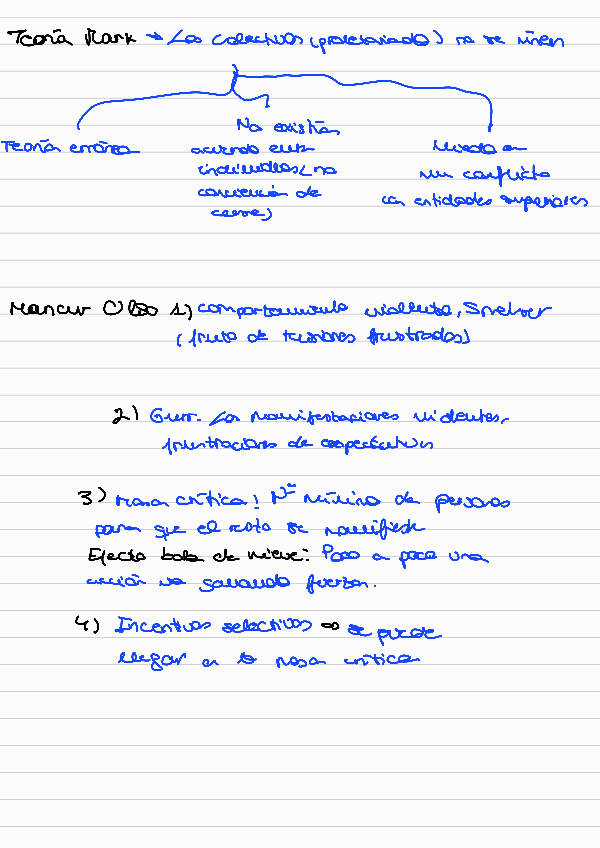 Teoría Marx → Los colectivos (proletariado) no se unen
Teoría errónea
No existían
acuerdo entre
individuos (no
conciencia de
clase)
Miedo a
un conflicto
con entidades superiores
Mancur Olso 1) comportamiento violento, Smelser
(fruto de tensiones frustradas)
2) Gurr. Las manifestaciones violentas,
frustraciones de expectativas
3) Masa crítica: Nº mínimo de personas
para que el resto se manifieste
Efecto bola de nieve: Poco a poco una
acción va ganando fuerza.
4) Incentivos selectivos ⇒ se puede
llegar a la masa crítica